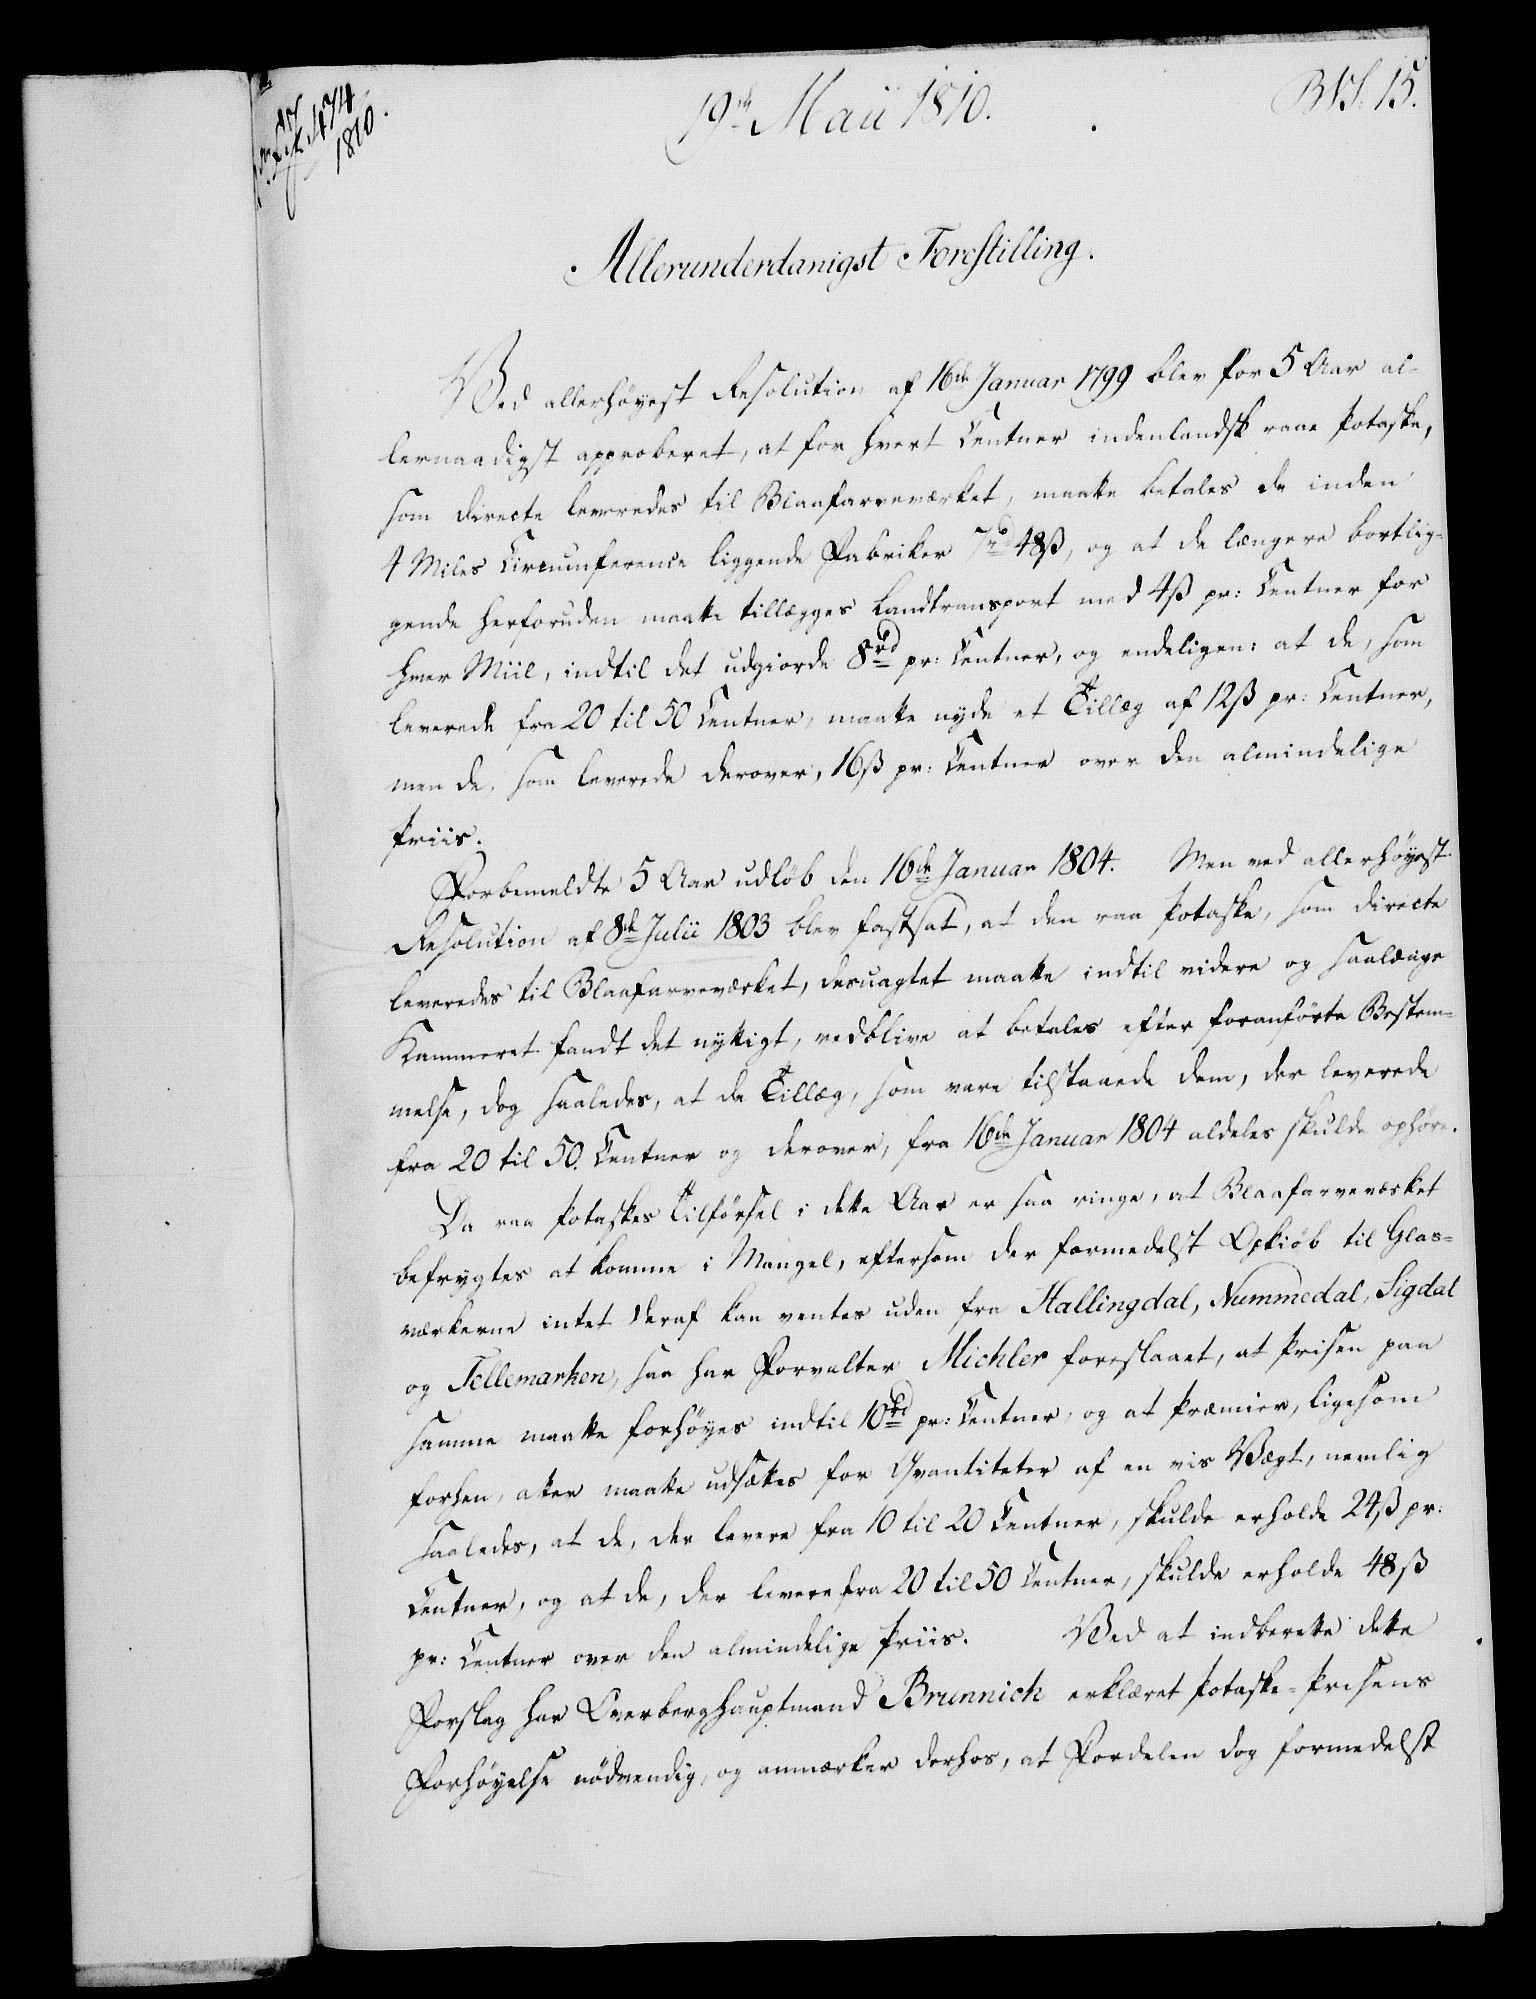 474
1810.
19de Maii 1810.
BN: 15.
Allerunderdanigst Forestilling.
Ved allerhöyest Resolution af 16de Januar 1799 blev for 5 Aar al-
lernaadigst approberet, at for hvert Centner indenlandsk raae Potaske,
som directe leveredes til Blaafarveværket, maatte betales de inden
4 Miles Circumference liggende Fabriker 7rd 48ß, og at de længere bortlig-
gende herforuden maatte tillægges Landtransport med 4ß pr: Centner for
hver Miil, indtil det udgiorde 8rd pr: Centner, og endeligen: at de, som
leverede fra 20 til 50 Centner, maatte nyde et Tillæg af 12ß pr: Centner,
men de, som leverede derover, 16ß pr: Centner over den almindelige
Priis.
Forbemeldte 5 Aar udlöb den 16de Januar 1804. Men ved allerhöyest
Resolution af 8de Julii 1803 blev fastsat, at den raa Potaske, som directe
leveredes til Blaafarveværket, desuagtet maatte indtil videre og saalænge
Kammeret fandt det nyttigt, vedblive at betales efter foranförte Bestem-
melse, dog saaledes, at de Tillæg, som vare tilstaaede dem, der leverede
fra 20 til 50 Centner og derover, fra 16de Januar 1804 aldeles skulde ophöre.
Da raa Potaskes Tilförsel i dette Aar er saa ringe, at Blaafarveværket
befrygtes at komme i Mangel, eftersom der formedelst Opkiöb til Glas-
værkerne intet deraf kan ventes uden fra Hallingdal, Nummedal, Sigdal
og Tellemarken, saa har Forvalter Michler foreslaaet, at Prisen paa
samme maatte forhöyes indtil 10rd pr: Centner, og at Præmier, ligesom
forhen, atter maatte udsættes for Qvantiteter af en vis Vægt, nemlig
saaledes, at de, der levere fra 10 til 20 Centner, skulde erholde 24ß pr:
Centner, og at de, der levere fra 20 til 50 Centner, skulde erholde 48ß
pr: Centner over den almindelige Priis. Ved at indberette dette
Forslag har Overberghauptmand Brünnich erklæret Potaske-Prisens
Forhöyelse nödvendig, og anmærker derhos, at Fordelen dog formedelst